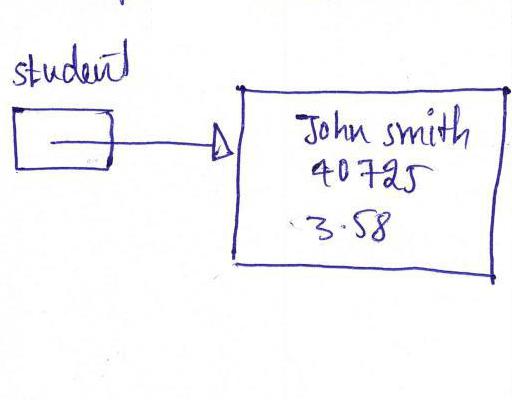 student
John smith
40725
3.58